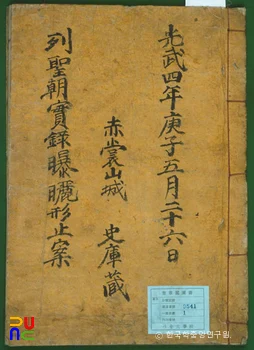 光武四年庚子五月二十六日
赤裳山城 史庫藏
列聖朝實錄曝曬形止案
5041
1
한국학중앙연구원